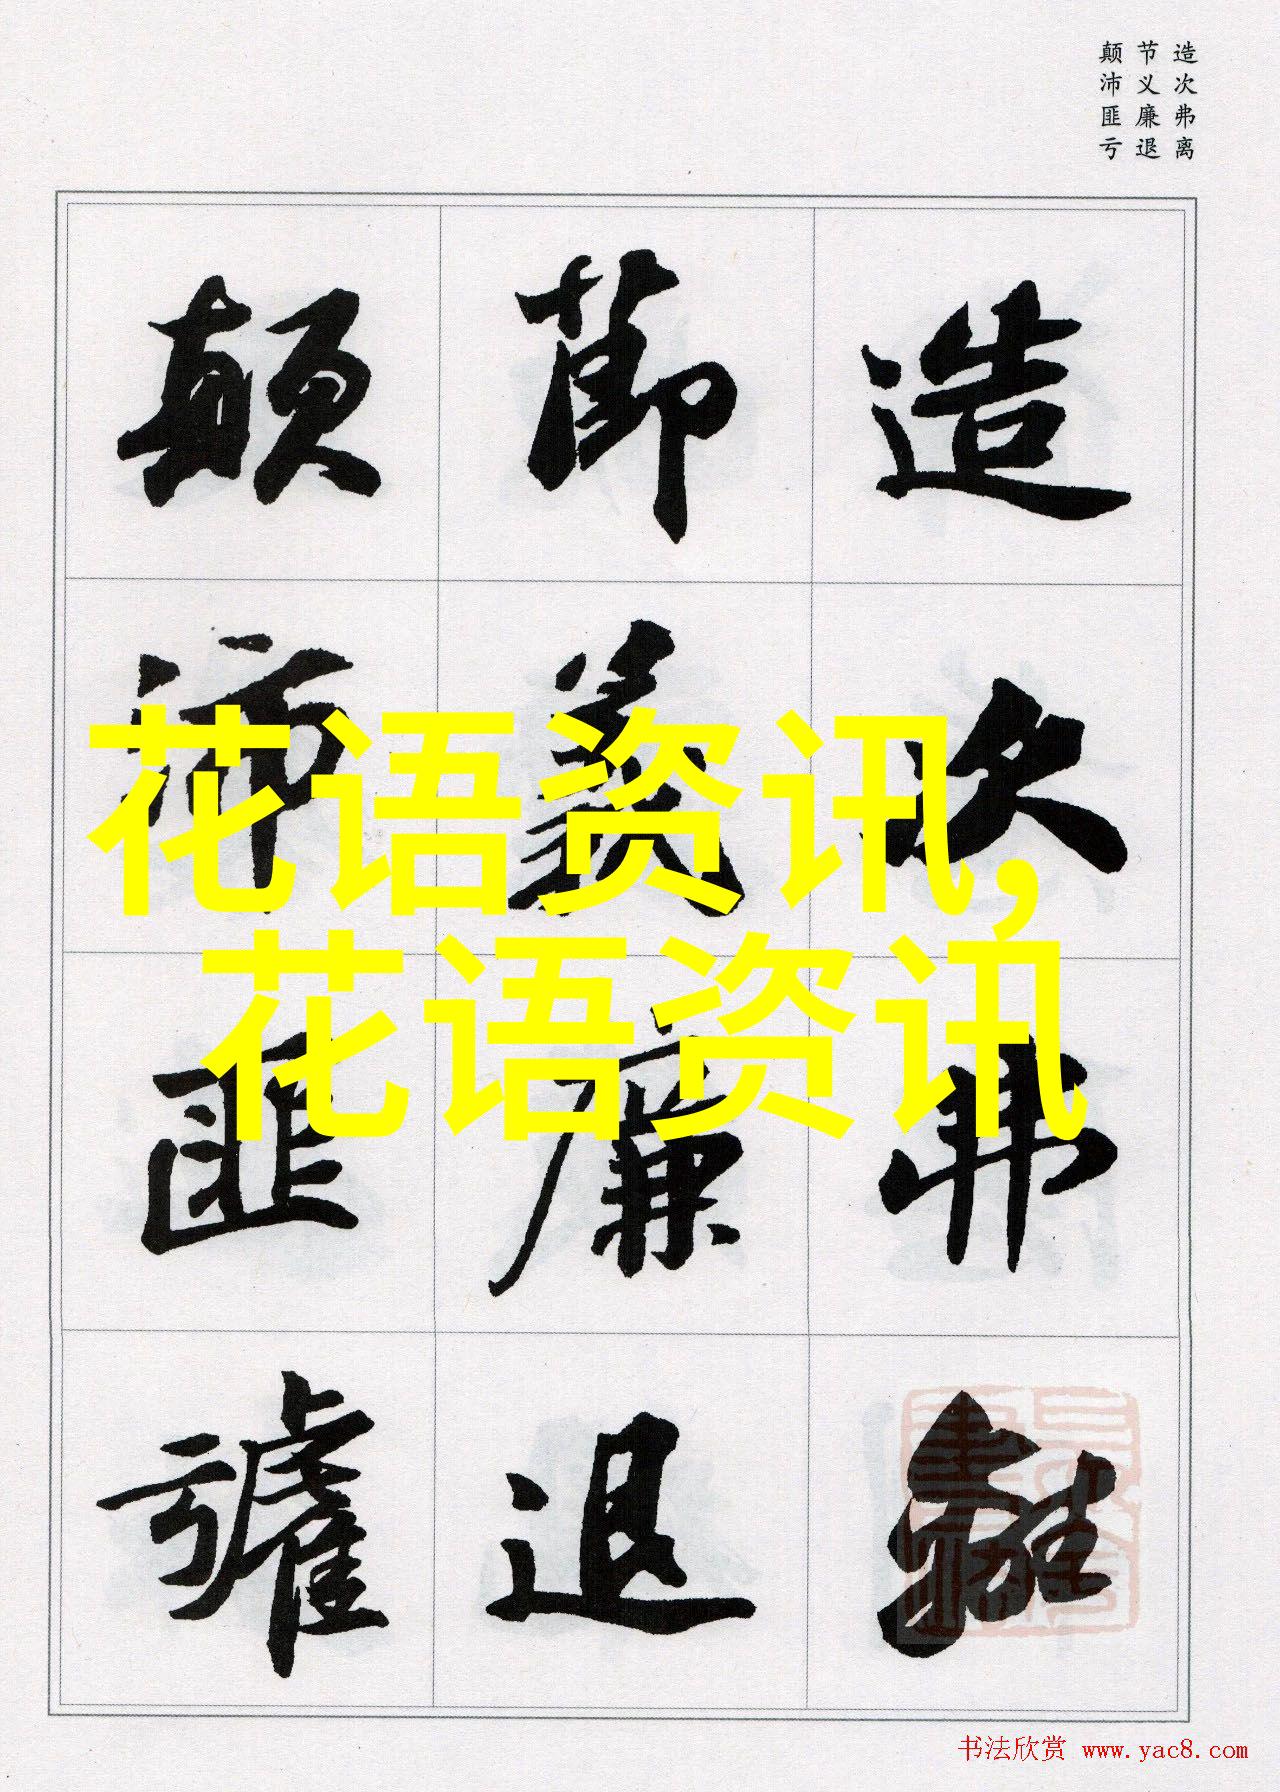 造次弗离
节义廉退
颠沛匪亏
造次弗離
節義廉退
顛沛匪虧
花语资讯,
花语资讯
书法欣赏 www.yac8.com